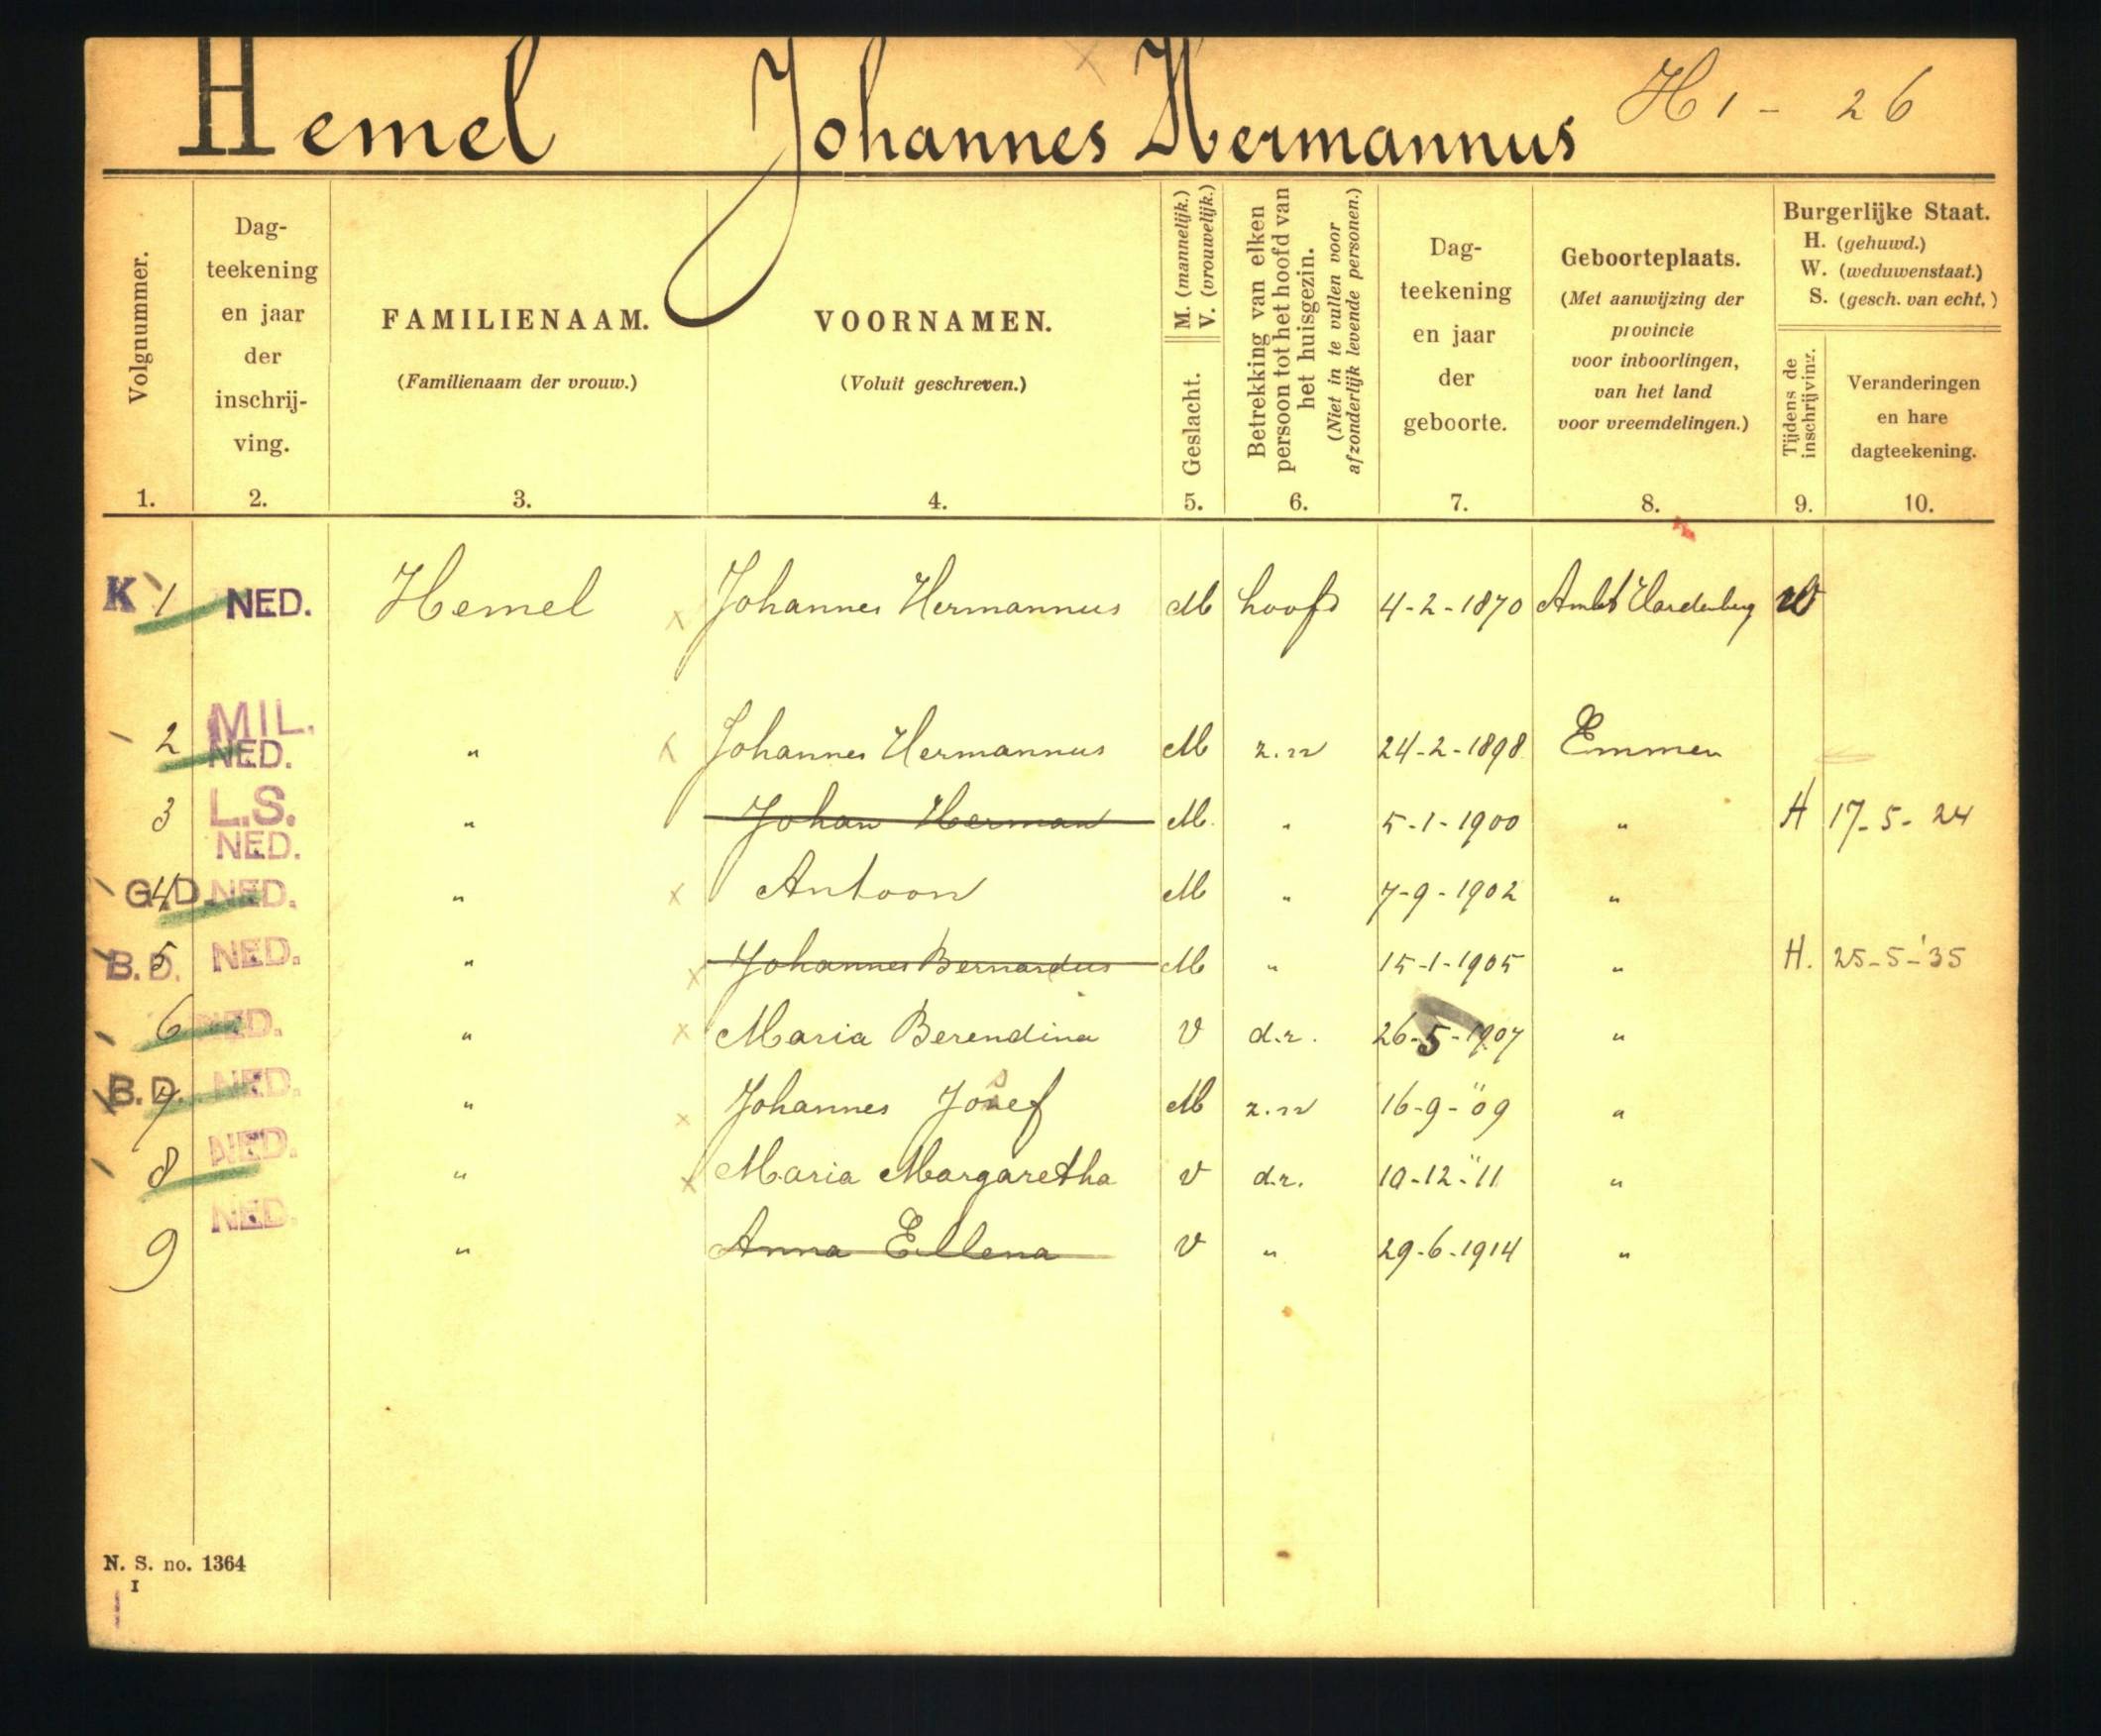 Hemel Johannes Hermannus H 1 - 26
Volgnummer.
1.
Dag-
teekening
en jaar
der
inschrij-
ving.
2.
FAMILIENAAM.
(Familienaam der vrouw.)
3.
VOORNAMEN.
(Voluit geschreven.)
4.
M. (mannelijk.)
V. (vrouwelijk.)
Geslacht.
5.
Betrekking van elken
persoon tot het hoofd van
het huisgezin.
(Niet in te vullen voor
afzonderlijk levende personen.)
6.
Dag-
teekening
en jaar
der
geboorte.
7.
Geboorteplaats.
(Met aanwijzing der
provincie
voor inboorlingen,
van het land
voor vreemdelingen.)
8.
Burgerlijke Staat.
H. (gehuwd.)
W. (weduwenstaat.)
S. (gesch. van echt.)
Tijdens de
inschrijving.
9.
Veranderingen
en hare
dagteekening.
10.
K 1 NED. Hemel Johannes Hermannus M hoofd 4-2-1870 Ambt Hardenberg W
MIL.
2 NED. " Johannes Hermannus M z.n 24-2-1898 Emmen
3 L.S. " Johan Herman M. " 5-1-1900 " H 17-5-24
NED.
G.D. 4 NED. " Antoon M " 7-9-1902 "
B.D. 5 NED. " Johannes Bernardus M " 15-1-1905 " H. 25-5-'35
6 NED. " Maria Berendina V d.r. 26-5-1907 "
B.D. 7 NED. " Johannes Josef M z.n 16-9-"09 "
8 NED. " Maria Margaretha V d.r. 10-12-"11 "
NED.
9 " Anna Ellena V " 29-6-1914 "
N. S. no. 1364
I